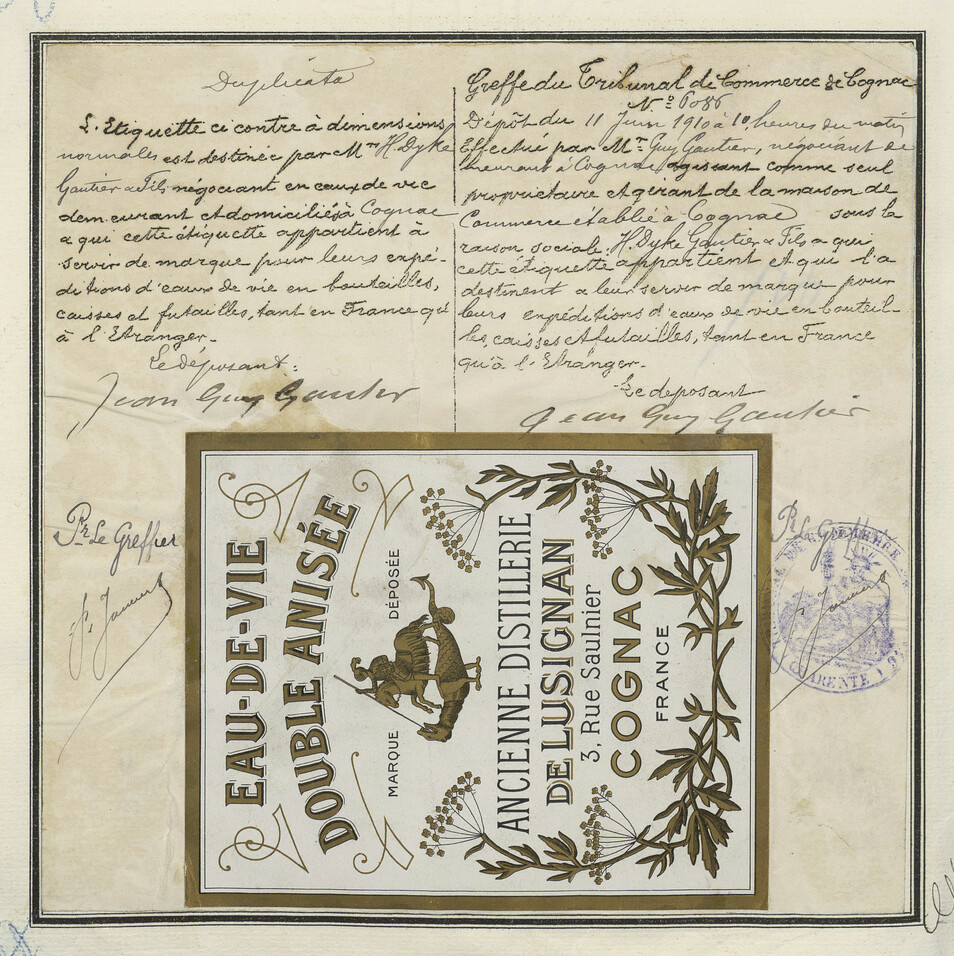 Duplicata
L'Etiquette ci contre à dimensions
normales est destinée par Mrs H. Dyke
Gautier & Fils négociant en eaux de vie
demeurant et domiciliés à Cognac
a qui cette étiquette appartient à
servir de marque pour leurs expé-
ditions d'eaux de vie en bouteilles,
caisses et futailles, tant en France qu'
à l'Etranger.
Le déposant:
Jean Guy Gautier
Greffe du Tribunal de Commerce de Cognac
No 6086
Dépôt du 11 Juin 1910 à 10 heures du matin
Effectué par Mr Guy Gautier, négociant de
meurant à Cognac agissant comme seul
propriétaire et gérant de la maison de
Commerce établie à Cognac sous la
raison sociale H. Dyke Gautier & Fils a qui
cette étiquette appartient et qui l'a
destinent a leur servir de marque pour
leurs expéditions d'eaux de vie en bouteil-
les, caisses et futailles, tant en France
qu'à l'Etranger.
Le deposant
Jean Guy Gautier
Pr Le Greffier
Pr Le Greffier
CHARENTE
EAU-DE-VIE
DOUBLE ANISÉE
MARQUE DÉPOSÉE
ANCIENNE DISTILLERIE
DE LUSIGNAN
3, Rue Saulnier
COGNAC
FRANCE